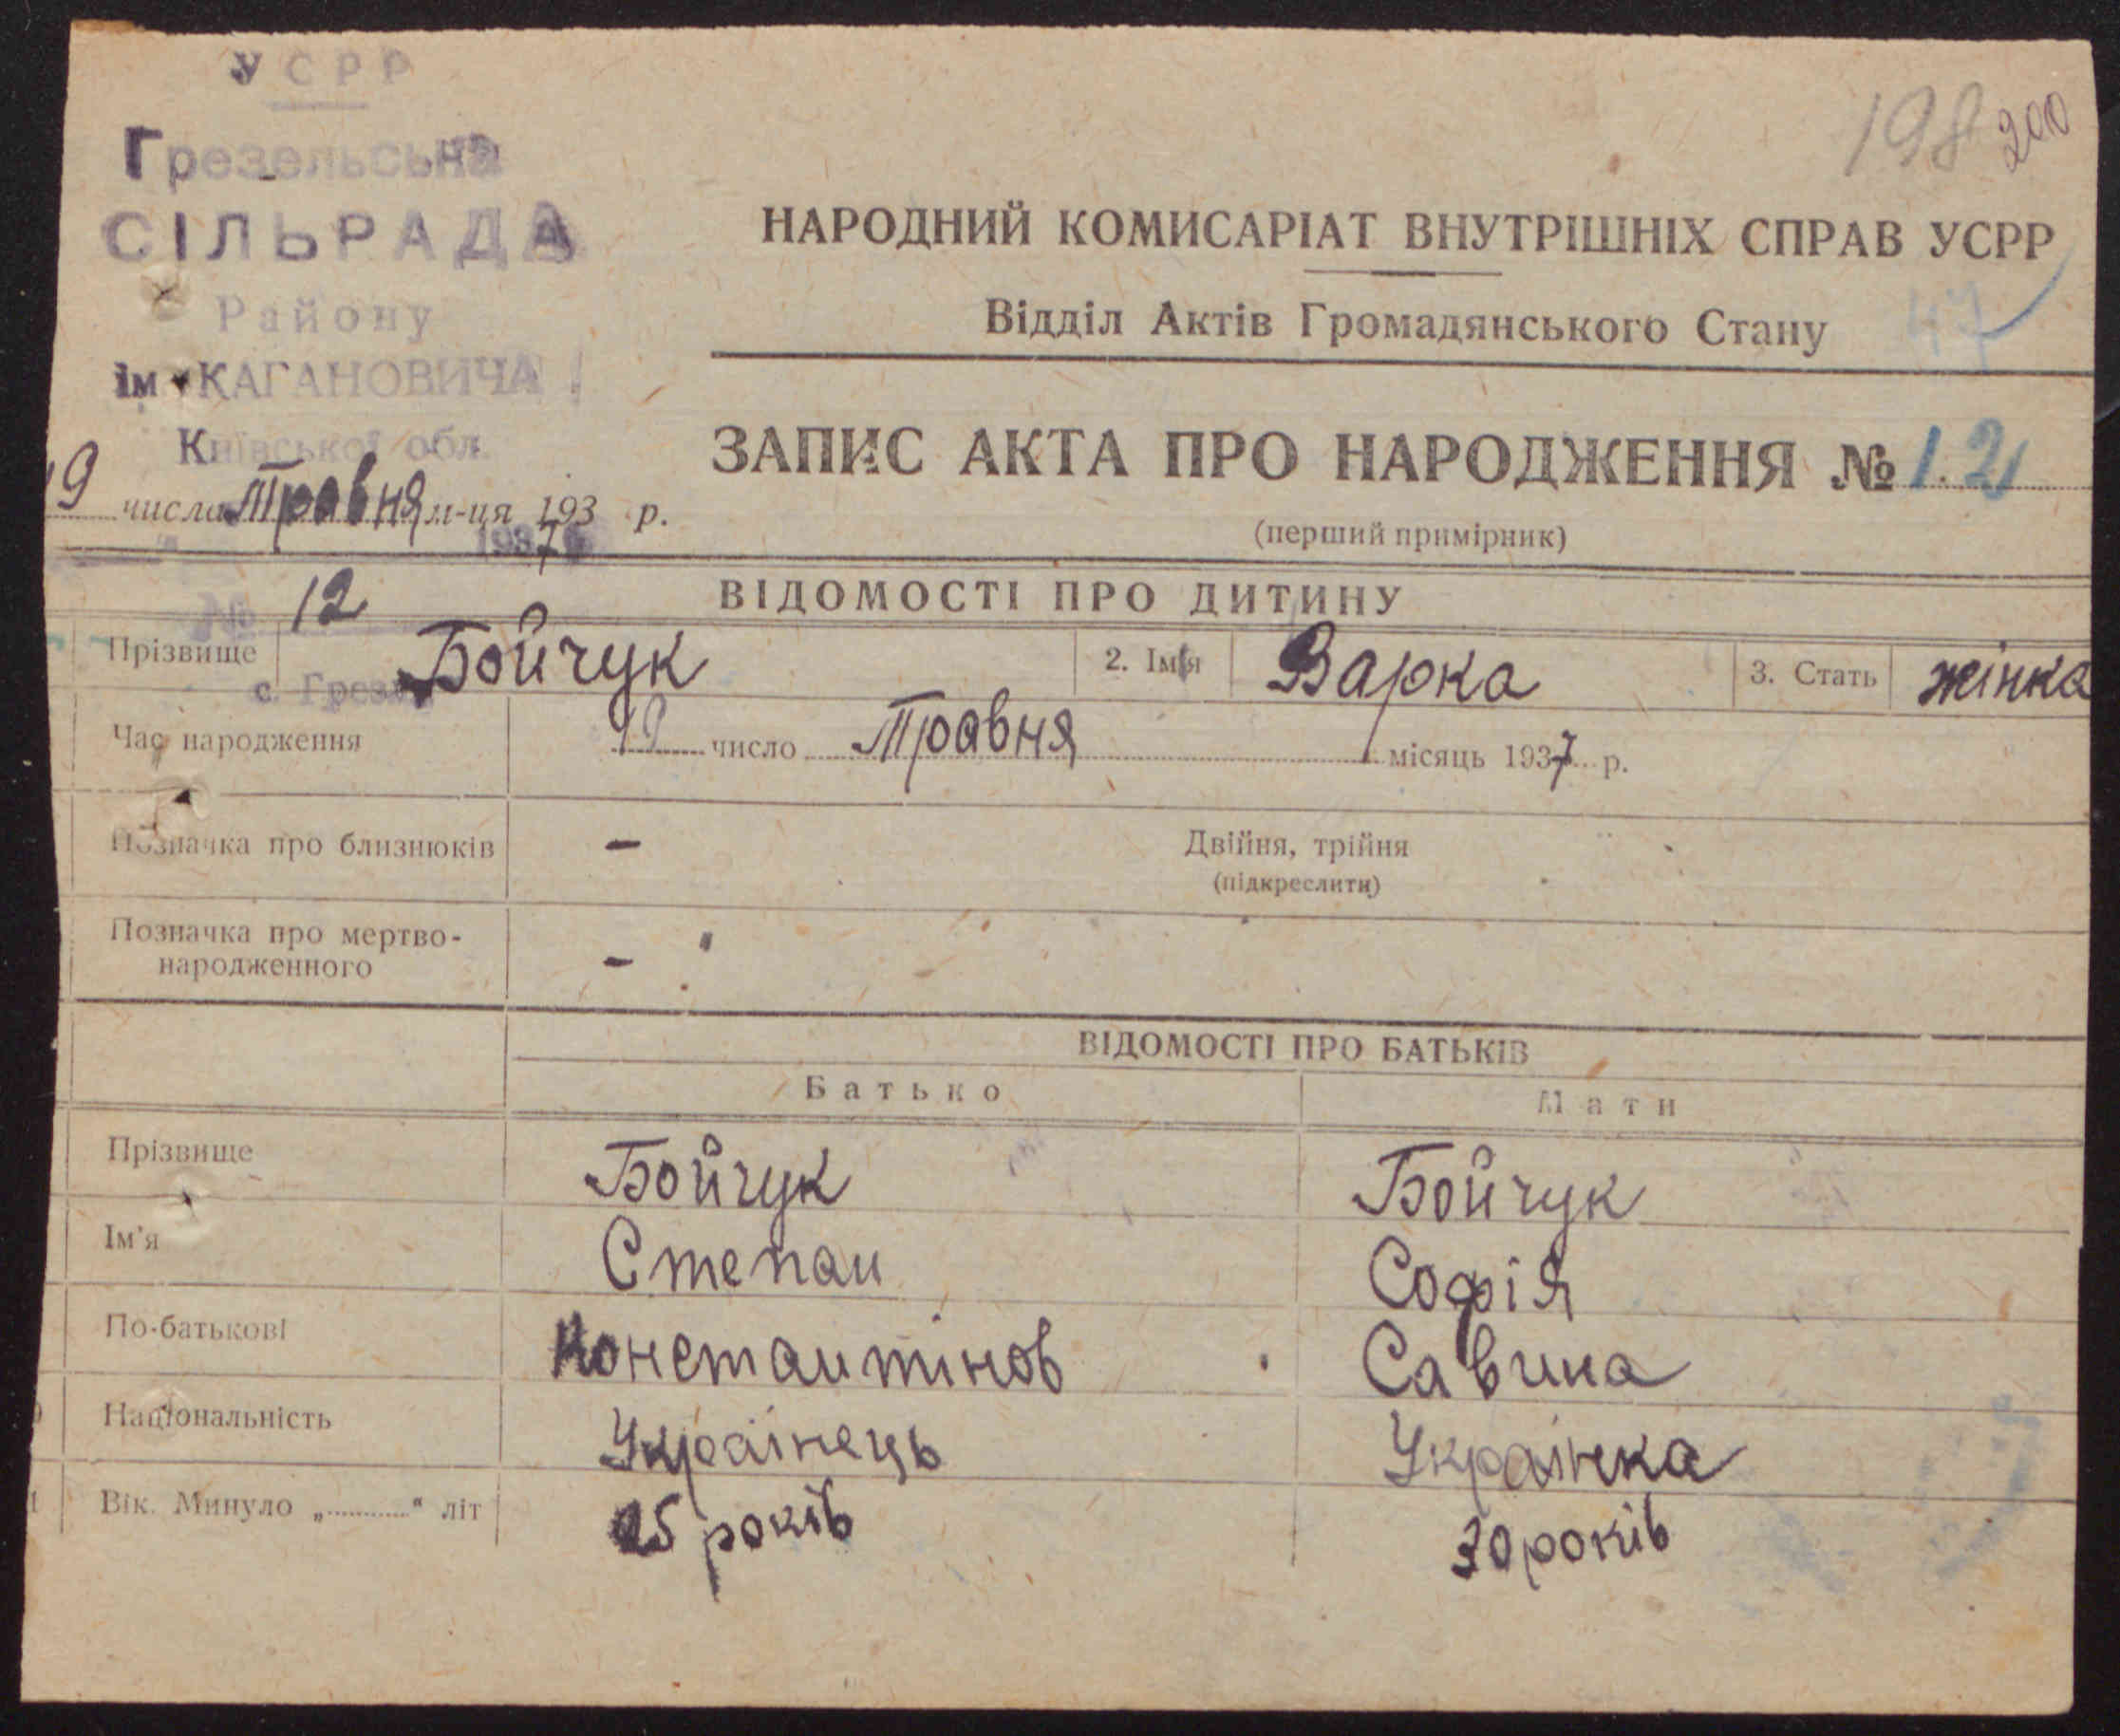 УСРР
Грезельська
СІЛЬРАДА
Району
ім. КАГАНОВИЧА
Київської обл.
198 200
НАРОДНИЙ КОМИСАРІАТ ВНУТРІШНІХ СПРАВ УСРР
Відділ Актів Громадянського Стану 47
ЗАПИС АКТА ПРО НАРОДЖЕННЯ № 12
(перший примірник)
19 числа Травня м-ця 193 р.
1937
№ 12
с. Грезля
ВІДОМОСТІ ПРО ДИТИНУ
Прізвище Бойчук 2. Ім'я Варка 3. Стать жінка
Час народження 19 число Травня місяць 1937 р.
Позначка про близнюків – Двійня, трійня
(підкреслити)
Позначка про мертво-
народженного –
ВІДОМОСТІ ПРО БАТЬКІВ
Батько Мати
Прізвище Бойчук Бойчук
Ім'я Степан Софія
По-батькові Константінов Савина
Національність Українець Українка
Вік. Минуло „..........“ літ років 30 років